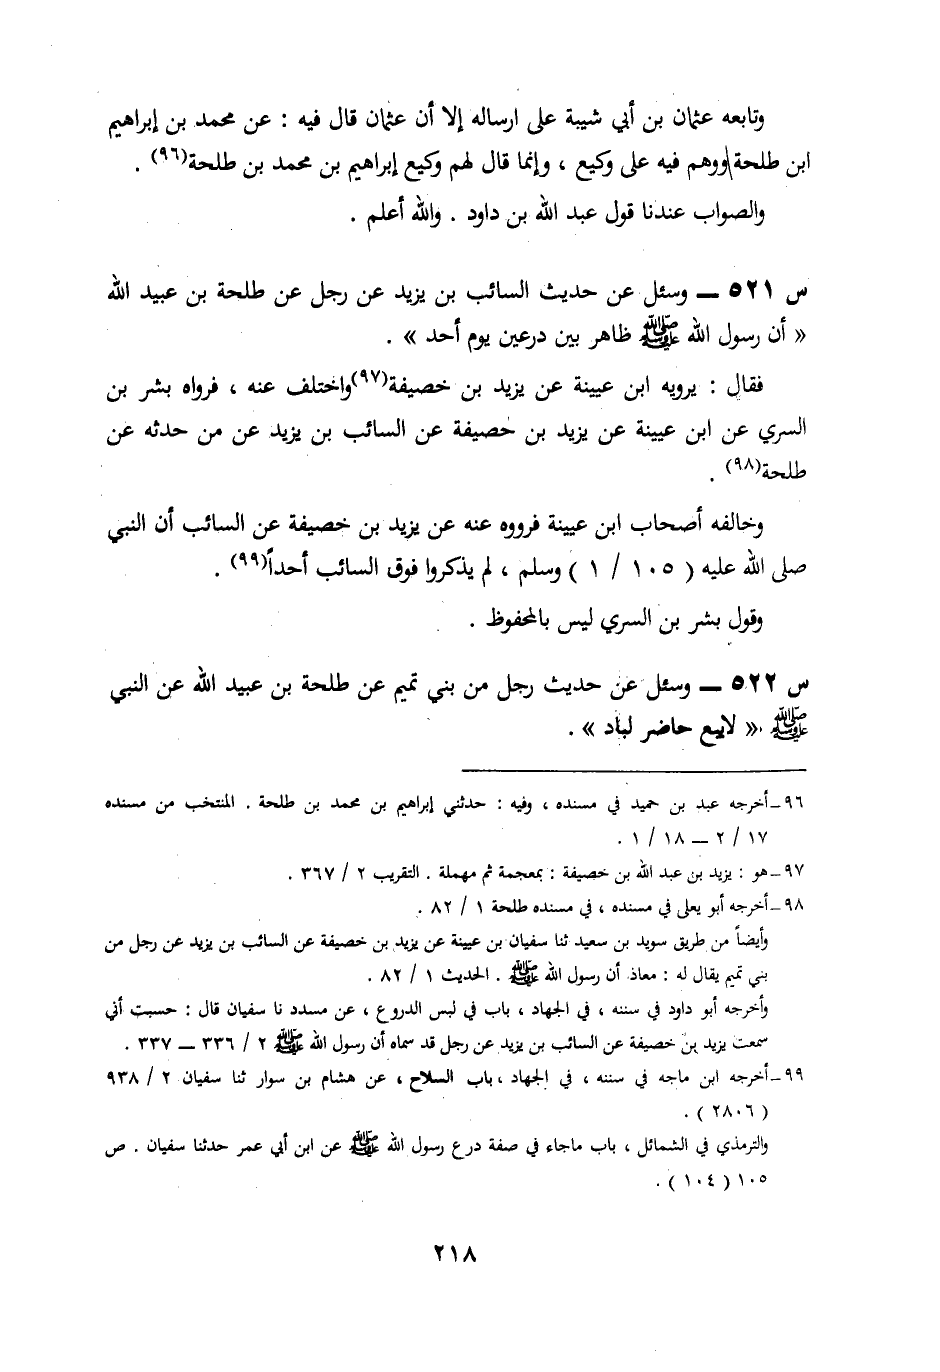 وتابعه عثمان بن أبي شيبة على ارساله إلا أن عثمان قال فيه : عن محمد بن إبراهيم
ابن طلحة ووهم فيه على وكيع ، وإنما قال لهم وكيع إبراهيم بن محمد بن طلحة(٩٦) .
والصواب عندنا قول عبد الله بن داود . والله أعلم .
س ٥٢١ ــ وسئل عن حديث السائب بن يزيد عن رجل عن طلحة بن عبيد الله
« أن رسول الله ﷺ ظاهر بين درعين يوم أحد » .
فقال : يرويه ابن عيينة عن يزيد بن خصيفة(٩٧) واختلف عنه ، فرواه بشر بن
السري عن ابن عيينة عن يزيد بن خصيفة عن السائب بن يزيد عن من حدثه عن
طلحة(٩٨) .
وخالفه أصحاب ابن عيينة فرووه عنه عن يزيد بن خصيفة عن السائب أن النبي
صلى الله عليه ( ١٠٥ / ١ ) وسلم ، لم يذكروا فوق السائب أحداً(٩٩) .
وقول بشر بن السري ليس بالمحفوظ .
س ٥٢٢ ــ وسئل عن حديث رجل من بني تميم عن طلحة بن عبيد الله عن النبي
ﷺ « لايبع حاضر لباد » .
٩٦ ــ أخرجه عبد بن حميد في مسنده ، وفيه : حدثني إبراهيم بن محمد بن طلحة . المنتخب من مسنده
١٧ / ٢ ــ ١٨ / ١ .
٩٧ ــ هو : يزيد بن عبد الله بن خصيفة : بمعجمة ثم مهملة . التقريب ٢ / ٣٦٧ .
٩٨ ــ أخرجه أبو يعلى في مسنده ، في مسنده طلحة ١ / ٨٢ .
وأيضاً من طريق سويد بن سعيد ثنا سفيان بن عيينة عن يزيد بن خصيفة عن السائب بن يزيد عن رجل من
بني تميم يقال له : معاذ أن رسول الله ﷺ . الحديث ١ / ٨٢ .
وأخرجه أبو داود في سننه ، في الجهاد ، باب في لبس الدروع ، عن مسدد نا سفيان قال : حسبت أني
سمعت يزيد بن خصيفة عن السائب بن يزيد عن رجل قد سماه أن رسول الله ﷺ ٢ / ٣٣٦ ــ ٣٣٧ .
٩٩ ــ أخرجه ابن ماجه في سننه ، في الجهاد ، باب السلاح ، عن هشام بن سوار ثنا سفيان ٢ / ٩٣٨
( ٢٨٠٦ ) .
والترمذي في الشمائل ، باب ماجاء في صفة درع رسول الله ﷺ عن ابن أبي عمر حدثنا سفيان . ص
١٠٥ ( ١٠٤ ) .
٢١٨